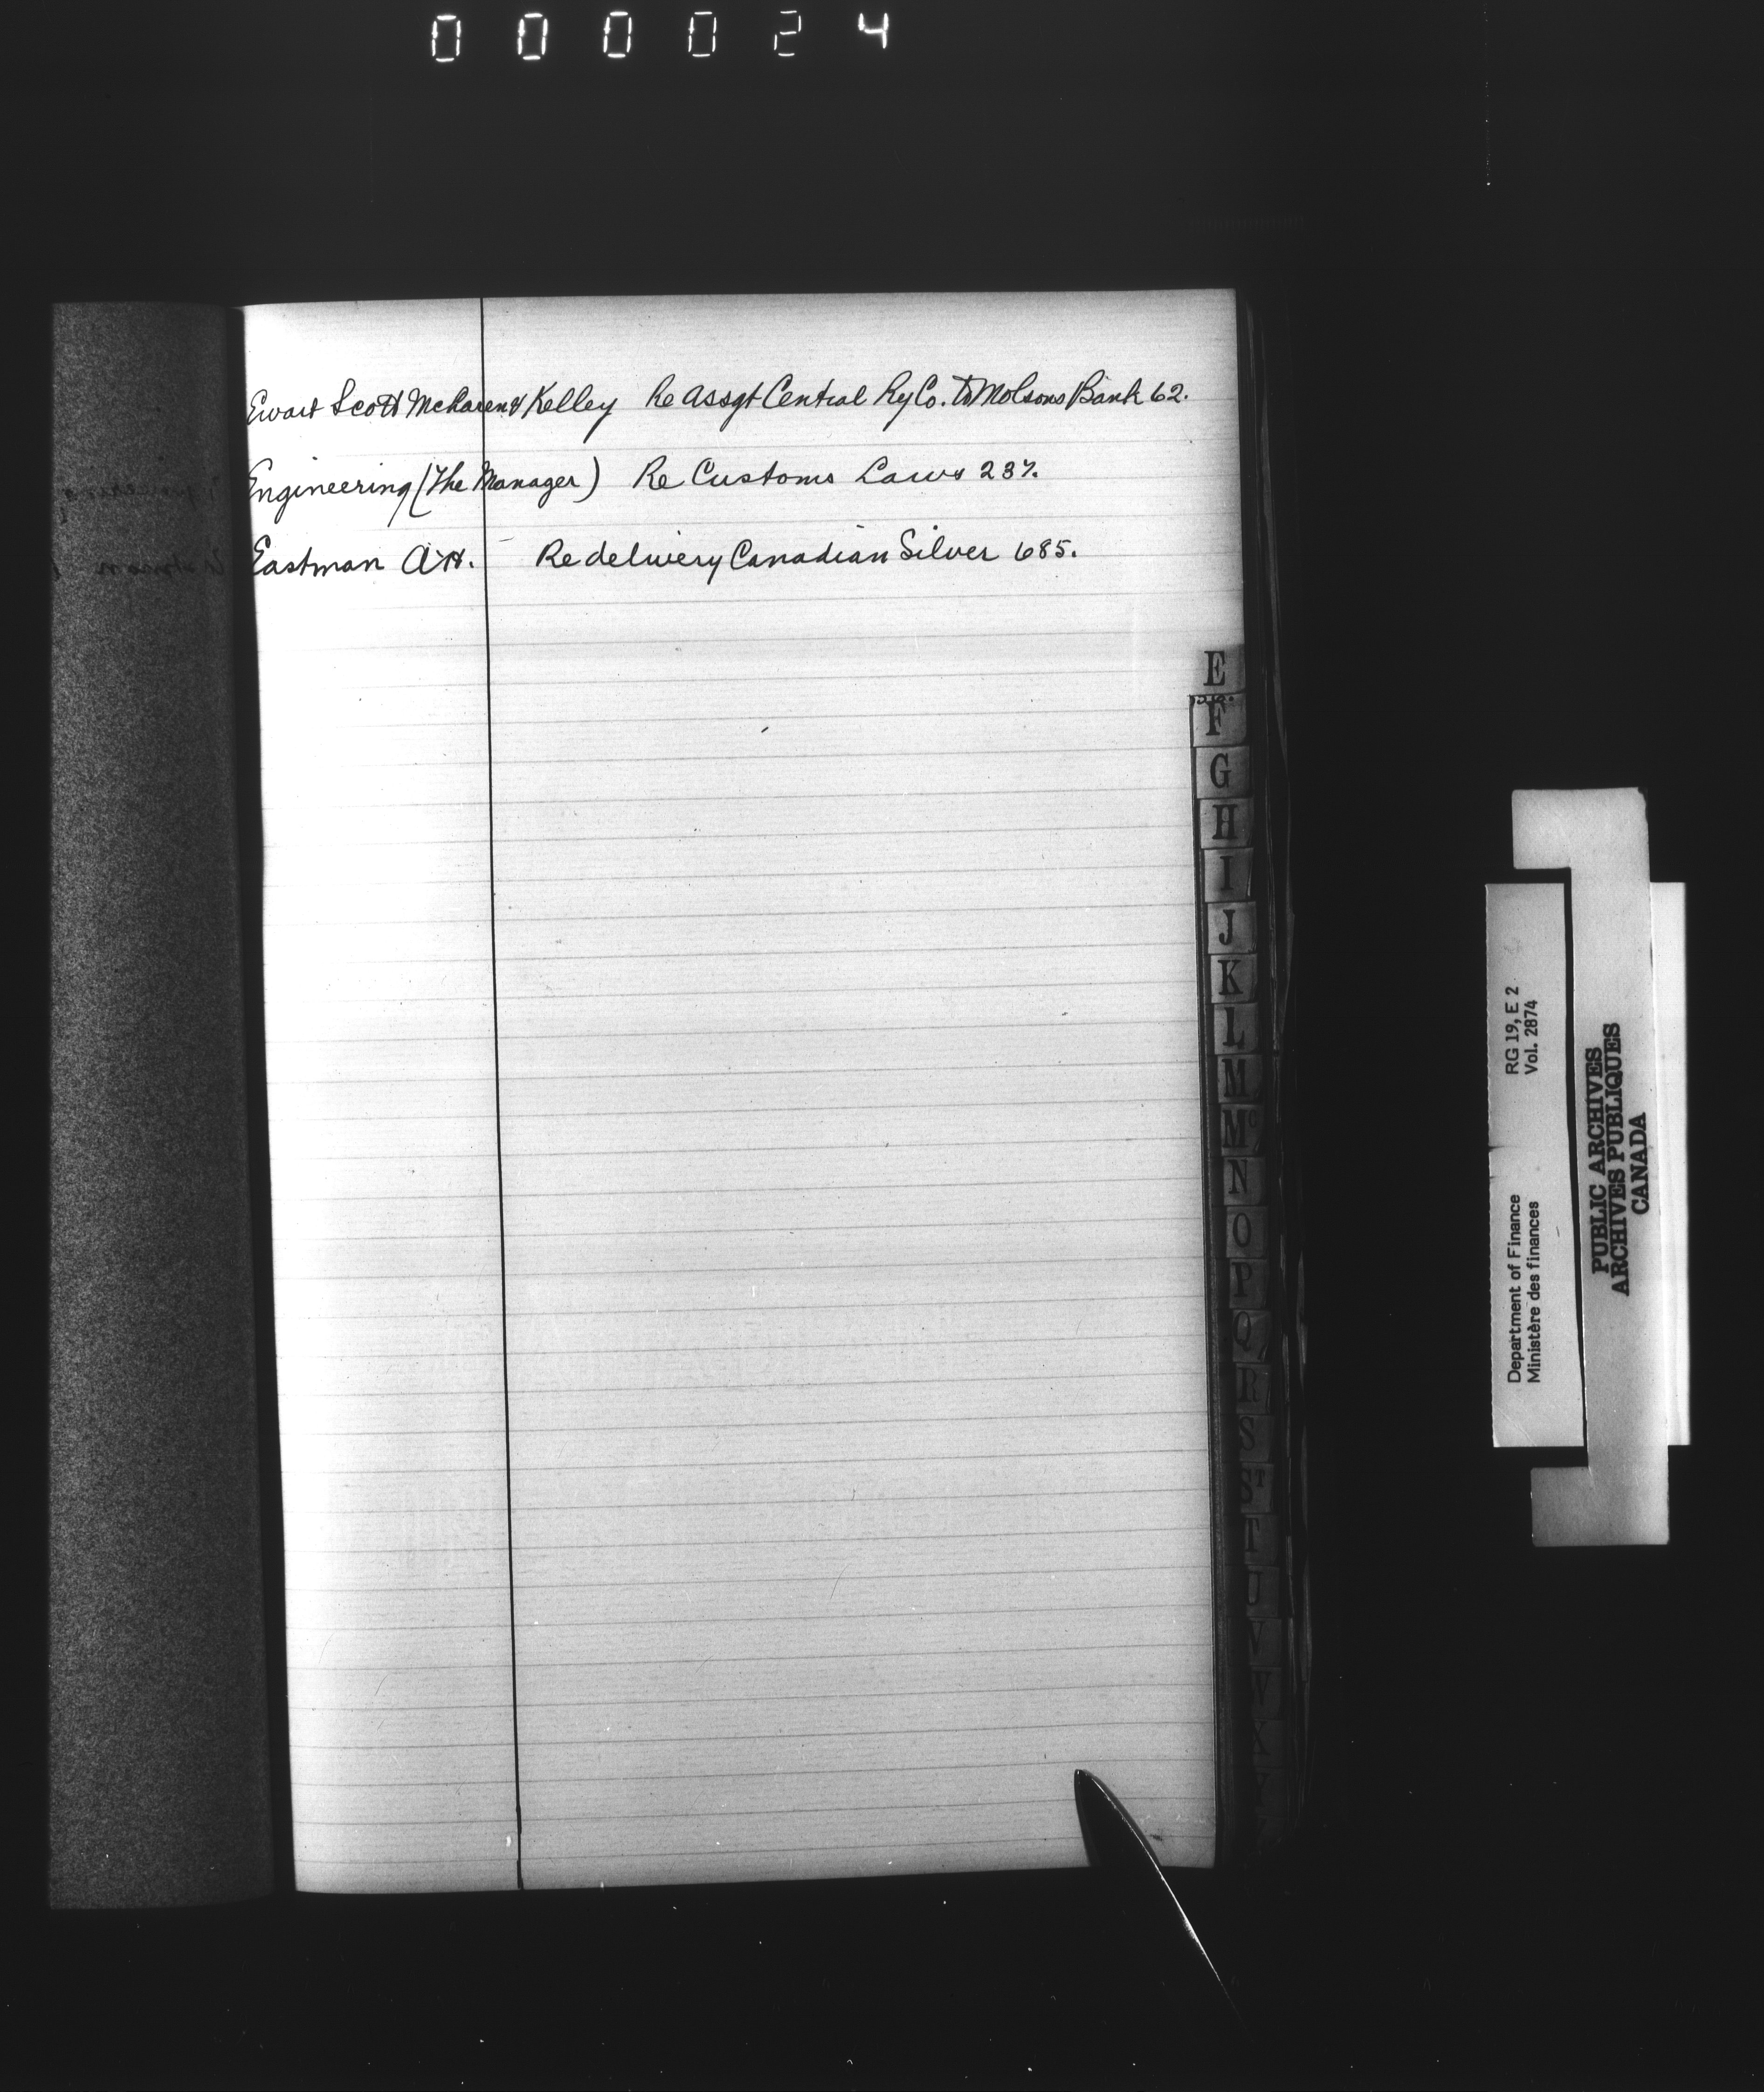 000024
Ewart Scott McLaren & Kelley Re Assgt Central Ry Co. to Molsons Bank 62.
Engineering (The Manager) Re Customs Laws 237.
Eastman A.H. Re delivery Canadian Silver 685.
E
F
G
H
I
J
K
L
M
Mc
N
O
P
Q
R
S
ST
T
U
V
W
X
Y
Department of Finance RG 19, E 2
Ministère des finances Vol. 2874
PUBLIC ARCHIVES
ARCHIVES PUBLIQUES
CANADA